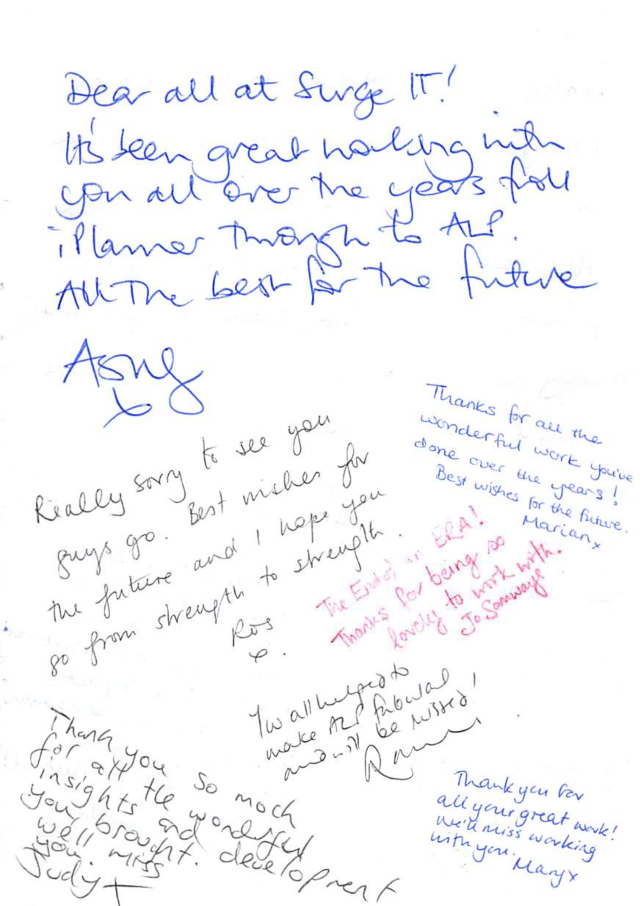 Dear all at Surge IT!
It's been great working with
you all over the years from
iPlanner through to ALP.
All The best for the future
x
Thanks for all the
wonderful work you've
done over the years!
Best wishes for the future.
Marian x
Really sorry to see you
guys go. Best wishes for
the future and I hope you
go from strength to strength.
Ros
x.
The End of an ERA!
Thanks for being so
lovely to work with.
Jo Samways
You all helped to
make ALP fabulous
and will be missed!
Thank you so much
for all the wonderful
insights and development
you brought.
We'll miss
you.
Judy
Thank you for
all your great work!
We'll miss working
with you.
Mary x